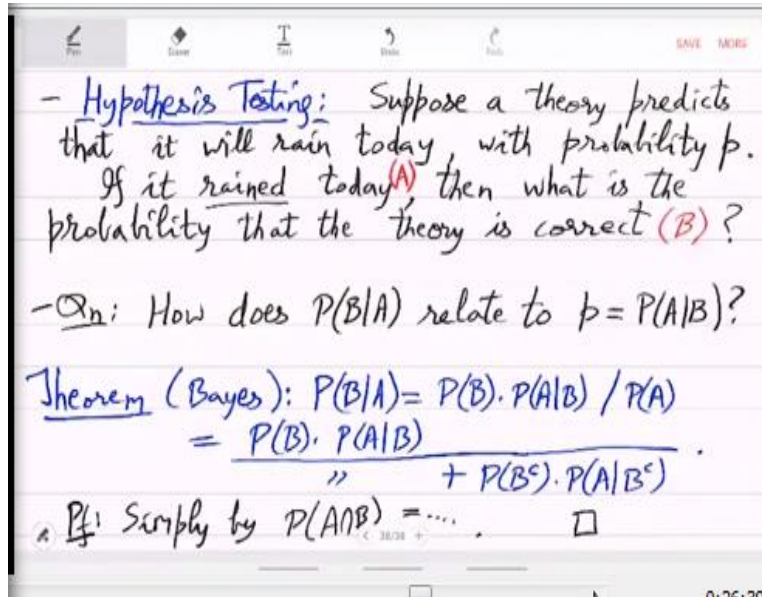 Pen Eraser Text Undo Redo SAVE MORE
- Hypothesis Testing: Suppose a theory predicts
that it will rain today, with probability p.
If it rained today(A), then what is the
probability that the theory is correct (B)?
- Qn: How does P(B|A) relate to p = P(A|B)?
Theorem (Bayes): P(B|A) = P(B). P(A|B) / P(A)
= P(B). P(A|B)
" + P(Bᶜ). P(A|Bᶜ) .
Pf: Simply by P(A∩B) = .... . □
< 38/38 +
0:26:20